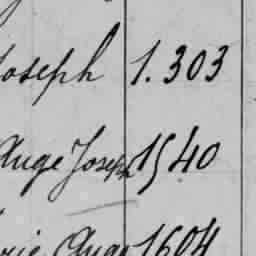 Joseph 1.303
Auge Joseph 1540
rie Auge 1604